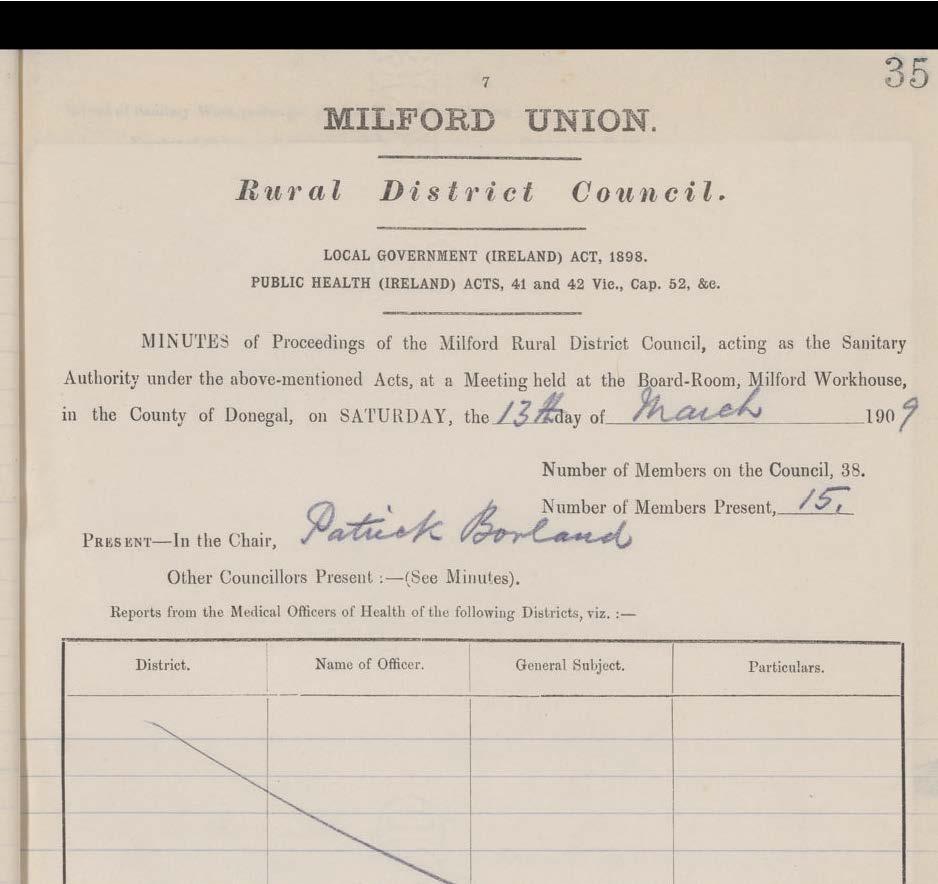 35
7
MILFORD UNION.
Rural District Council.
LOCAL GOVERNMENT (IRELAND) ACT, 1898.
PUBLIC HEALTH (IRELAND) ACTS, 41 and 42 Vic., Cap. 52, &c.
MINUTES of Proceedings of the Milford Rural District Council, acting as the Sanitary
Authority under the above-mentioned Acts, at a Meeting held at the Board-Room, Milford Workhouse,
in the County of Donegal, on SATURDAY, the 13th day of March 1909
Number of Members on the Council, 38.
Number of Members Present, 15.
PRESENT—In the Chair, Patrick Borland
Other Councillors Present :—(See Minutes).
Reports from the Medical Officers of Health of the following Districts, viz. :—
District. Name of Officer. General Subject. Particulars.